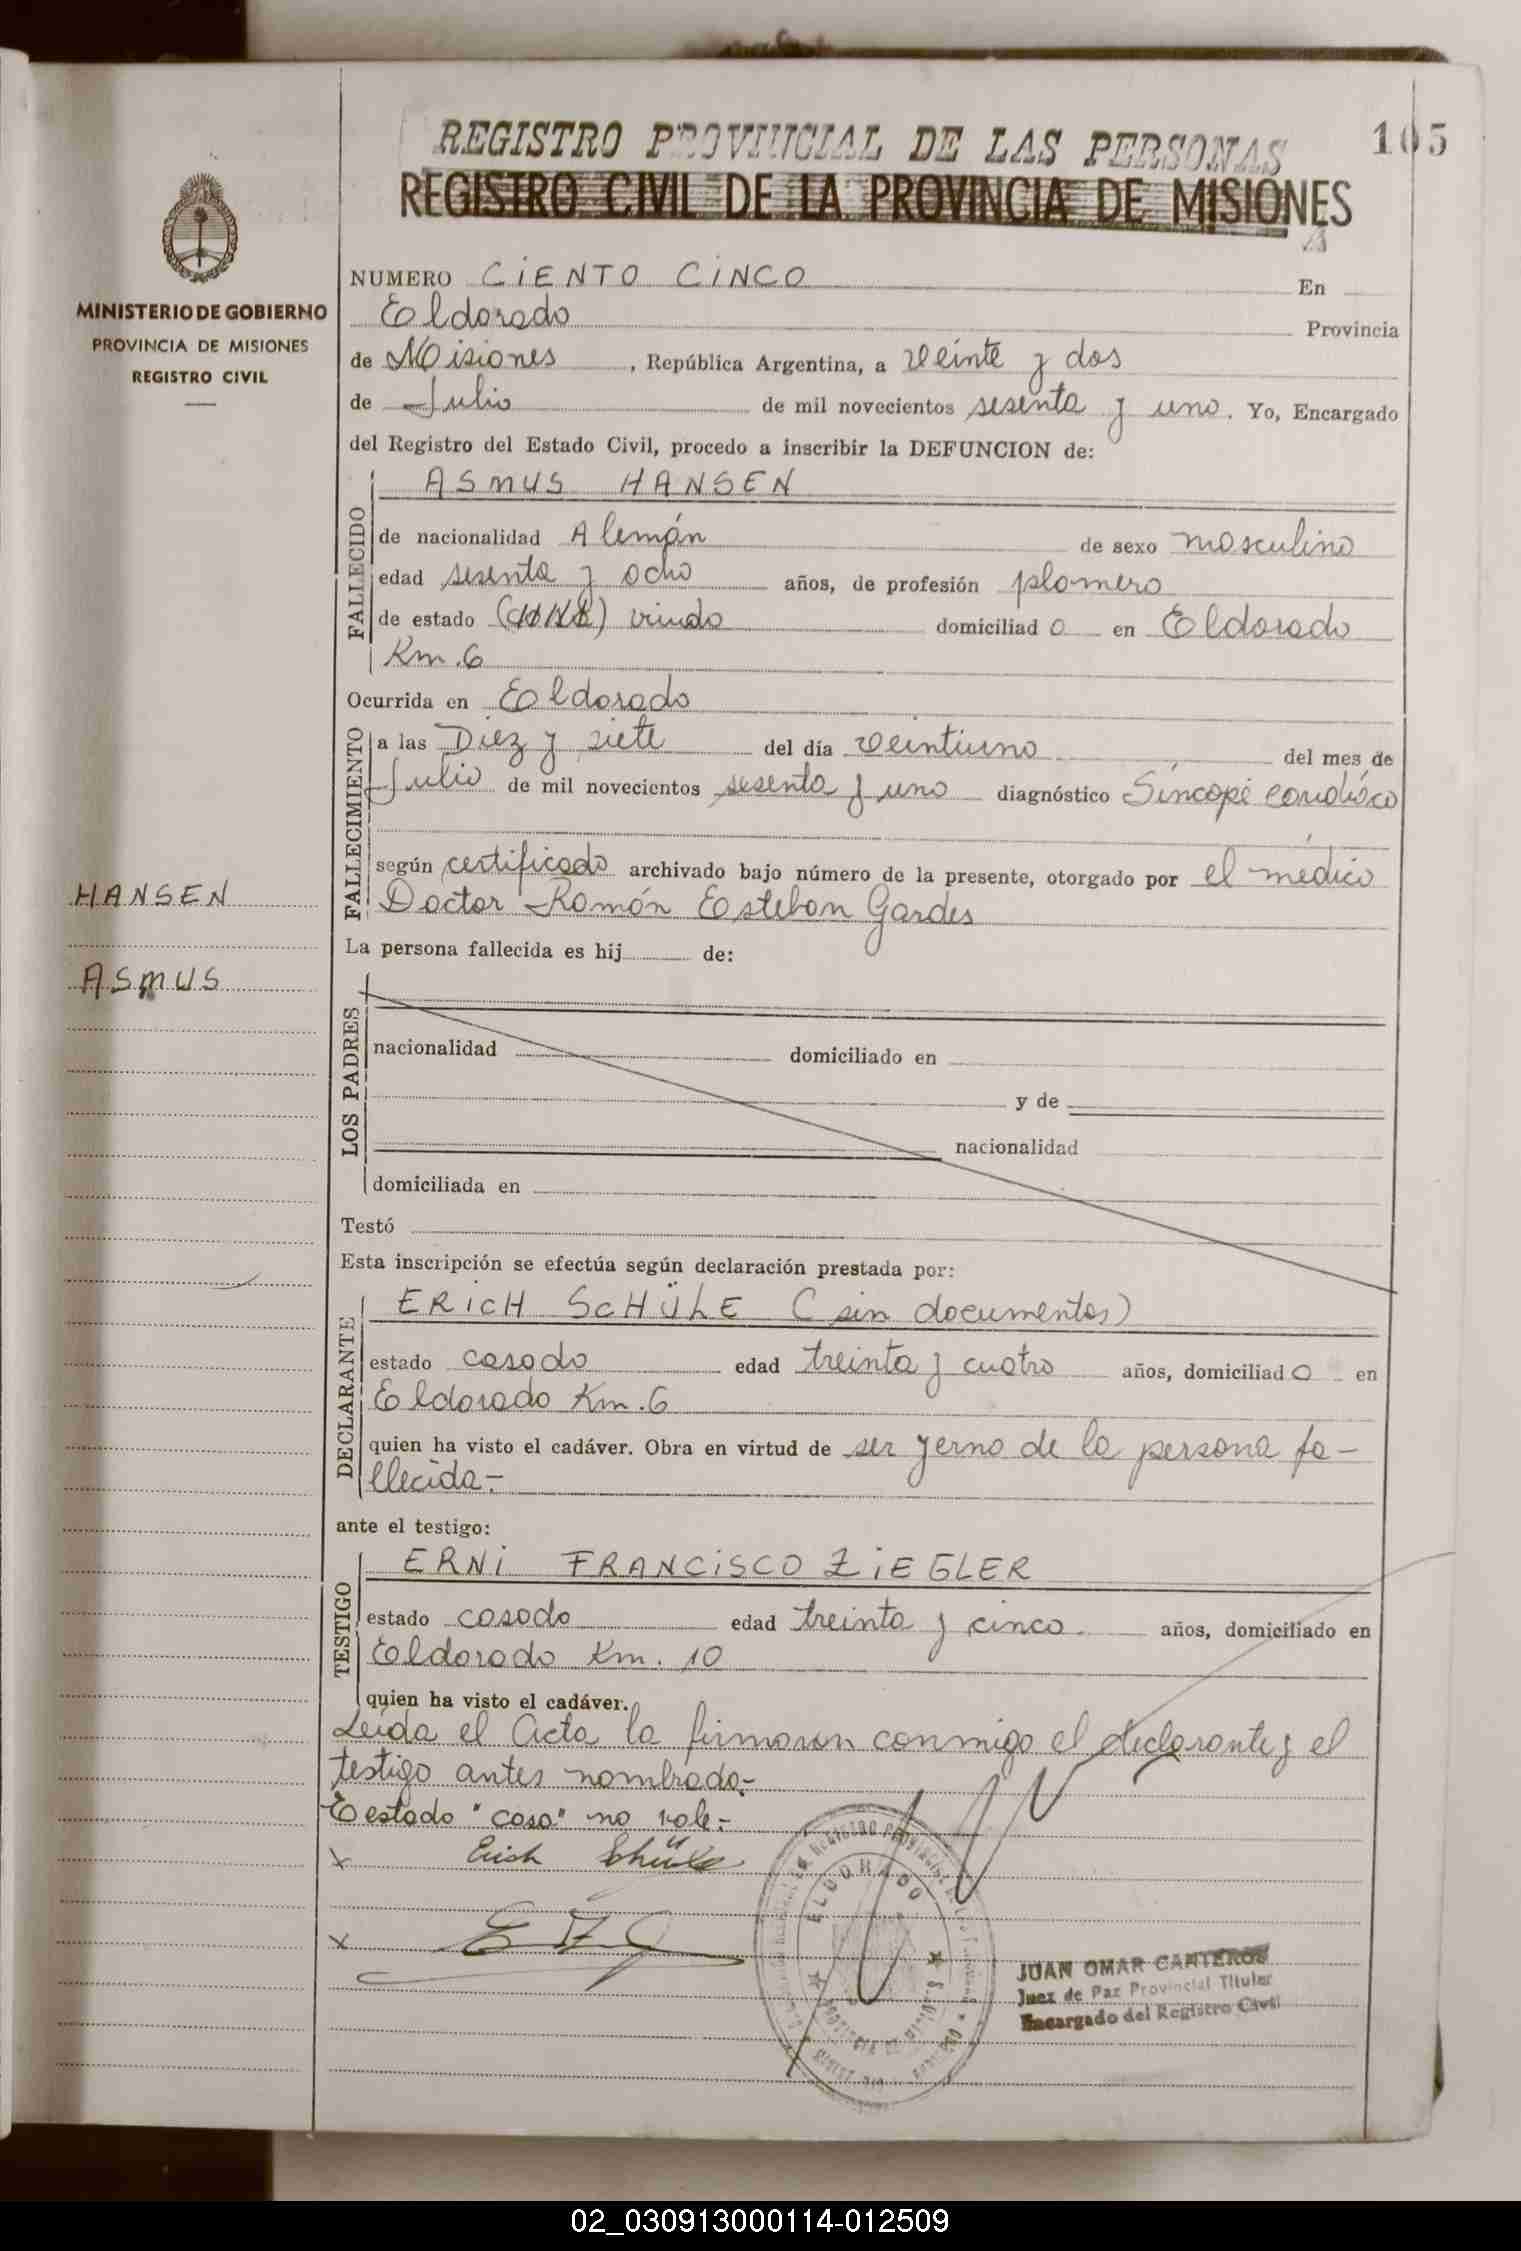 REGISTRO PROVINCIAL DE LAS PERSONAS
105
REGISTRO CIVIL DE LA PROVINCIA DE MISIONES
MINISTERIO DE GOBIERNO
PROVINCIA DE MISIONES
REGISTRO CIVIL
NUMERO CiENTO CiNCO En
Eldorado Provincia
de Misiones, República Argentina, a Veinte y dos
de Julio de mil novecientos sesenta y uno. Yo, Encargado
del Registro del Estado Civil, procedo a inscribir la DEFUNCION de:
FALLECIDO
ASMUS HANSEN
de nacionalidad Alemán de sexo masculino
edad sesenta y ocho años, de profesión plomero
de estado ( ) viudo domiciliad o en Eldorado
Km. 6
Ocurrida en Eldorado
FALLECIMIENTO
a las Diez y siete del día veintiuno del mes de
Julio de mil novecientos sesenta y uno diagnóstico Síncope cardíaco
según certificado archivado bajo número de la presente, otorgado por el médico
Doctor Román Esteban Gardes
HANSEN
ASMUS
La persona fallecida es hij de:
LOS PADRES
nacionalidad domiciliado en
y de
nacionalidad
domiciliada en
Testó
Esta inscripción se efectúa según declaración prestada por:
DECLARANTE
ERiCH SCHÜLE (sin documentos)
estado casado edad treinta y cuatro años, domiciliad o en
Eldorado Km. 6
quien ha visto el cadáver. Obra en virtud de ser yerno de la persona fa-
llecida.-
ante el testigo:
TESTIGO
ERNi FRANCiSCO ZiEGLER
estado casado edad treinta y cinco años, domiciliado en
Eldorado Km. 10
quien ha visto el cadáver.
Leída el Acta la firmaron conmigo el declarante y el
testigo antes nombrado.-
E estado "casa" no vale.-
x Erich Schüle
x
ELDORADO
JUAN OMAR CANTEROS
Juez de Paz Provincial Titular
Encargado del Registro Civil
02_030913000114-012509